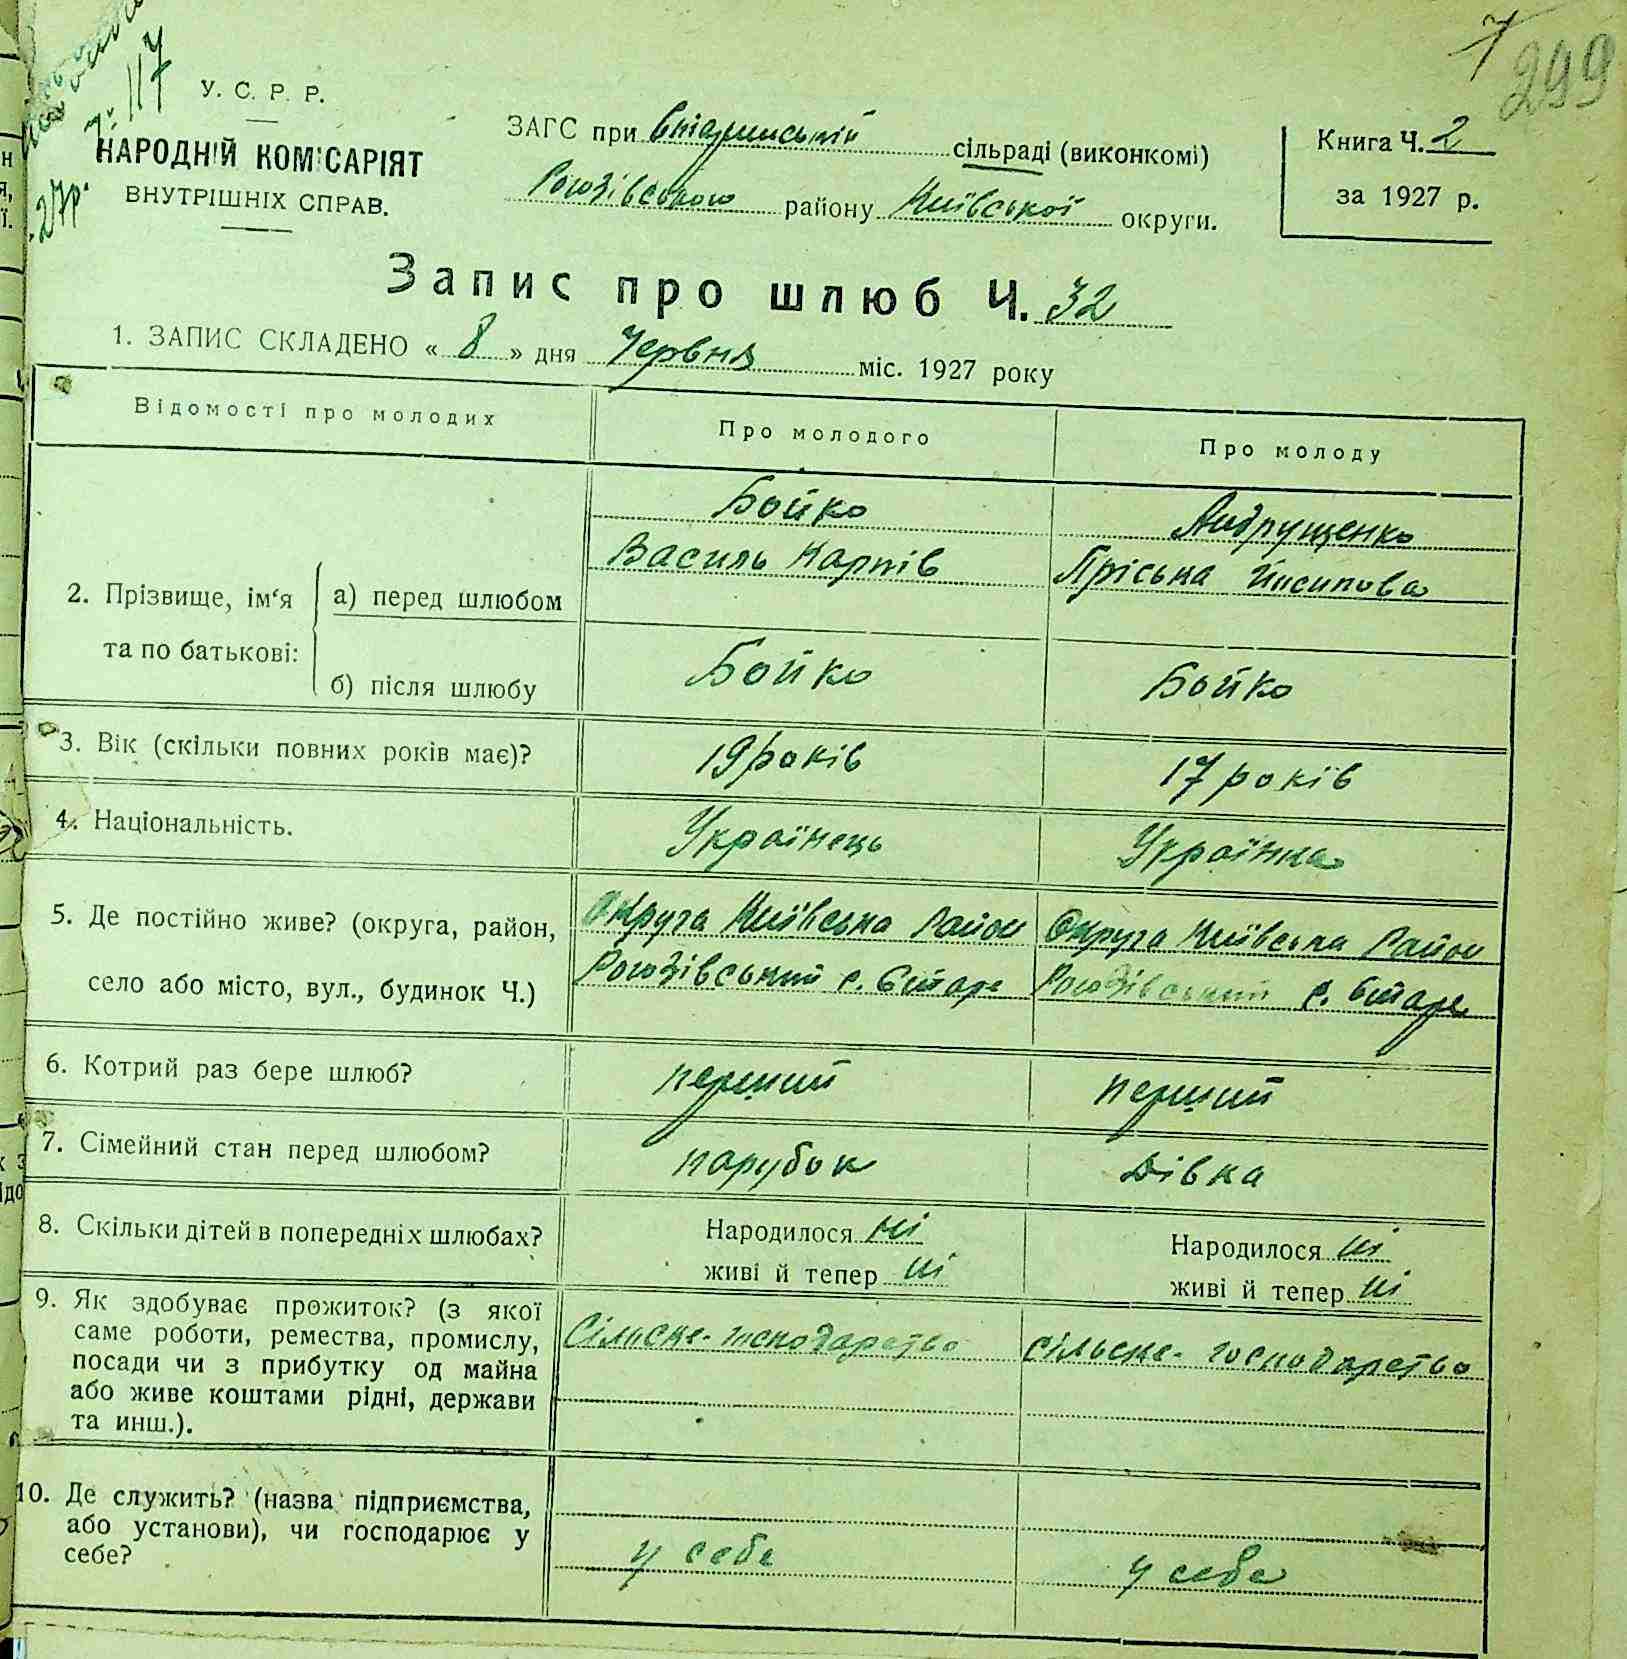 7
299
№ 117
У. С. Р. Р.
НАРОДНІЙ КОМІСАРІЯТ
ВНУТРІШНІХ СПРАВ.
27р.
ЗАГС при Старинській сільраді (виконкомі)
Рогозівського району Київської округи.
Книга Ч. 2
за 1927 р.
Запис про шлюб Ч. 32
1. ЗАПИС СКЛАДЕНО « 8 » дня Червня міс. 1927 року
Відомості про молодих
Про молодого
Про молоду
2. Прізвище, ім‘я та по батькові:
а) перед шлюбом
Бойко
Василь Карпів
Андрущенко
Пріська Йосипова
б) після шлюбу
Бойко
Бойко
3. Вік (скільки повних років має)?
19 років
17 років
4. Національність.
Українець
Українка
5. Де постійно живе? (округа, район,
село або місто, вул., будинок Ч.)
Округа Київська Район
Рогозівський с. Старе
Округа Київська Район
Рогозівський с. Старе
6. Котрий раз бере шлюб?
перший
перший
7. Сімейний стан перед шлюбом?
парубок
Дівка
8. Скільки дітей в попередніх шлюбах?
Народилося ні
живі й тепер ні
Народилося ні
живі й тепер ні
9. Як здобуває прожиток? (з якої
саме роботи, ремества, промислу,
посади чи з прибутку од майна
або живе коштами рідні, держави
та инш.).
Сільске-господарство
сільске-господарство
10. Де служить? (назва підприємства,
або установи), чи господарює у
себе?
у себе
у себе